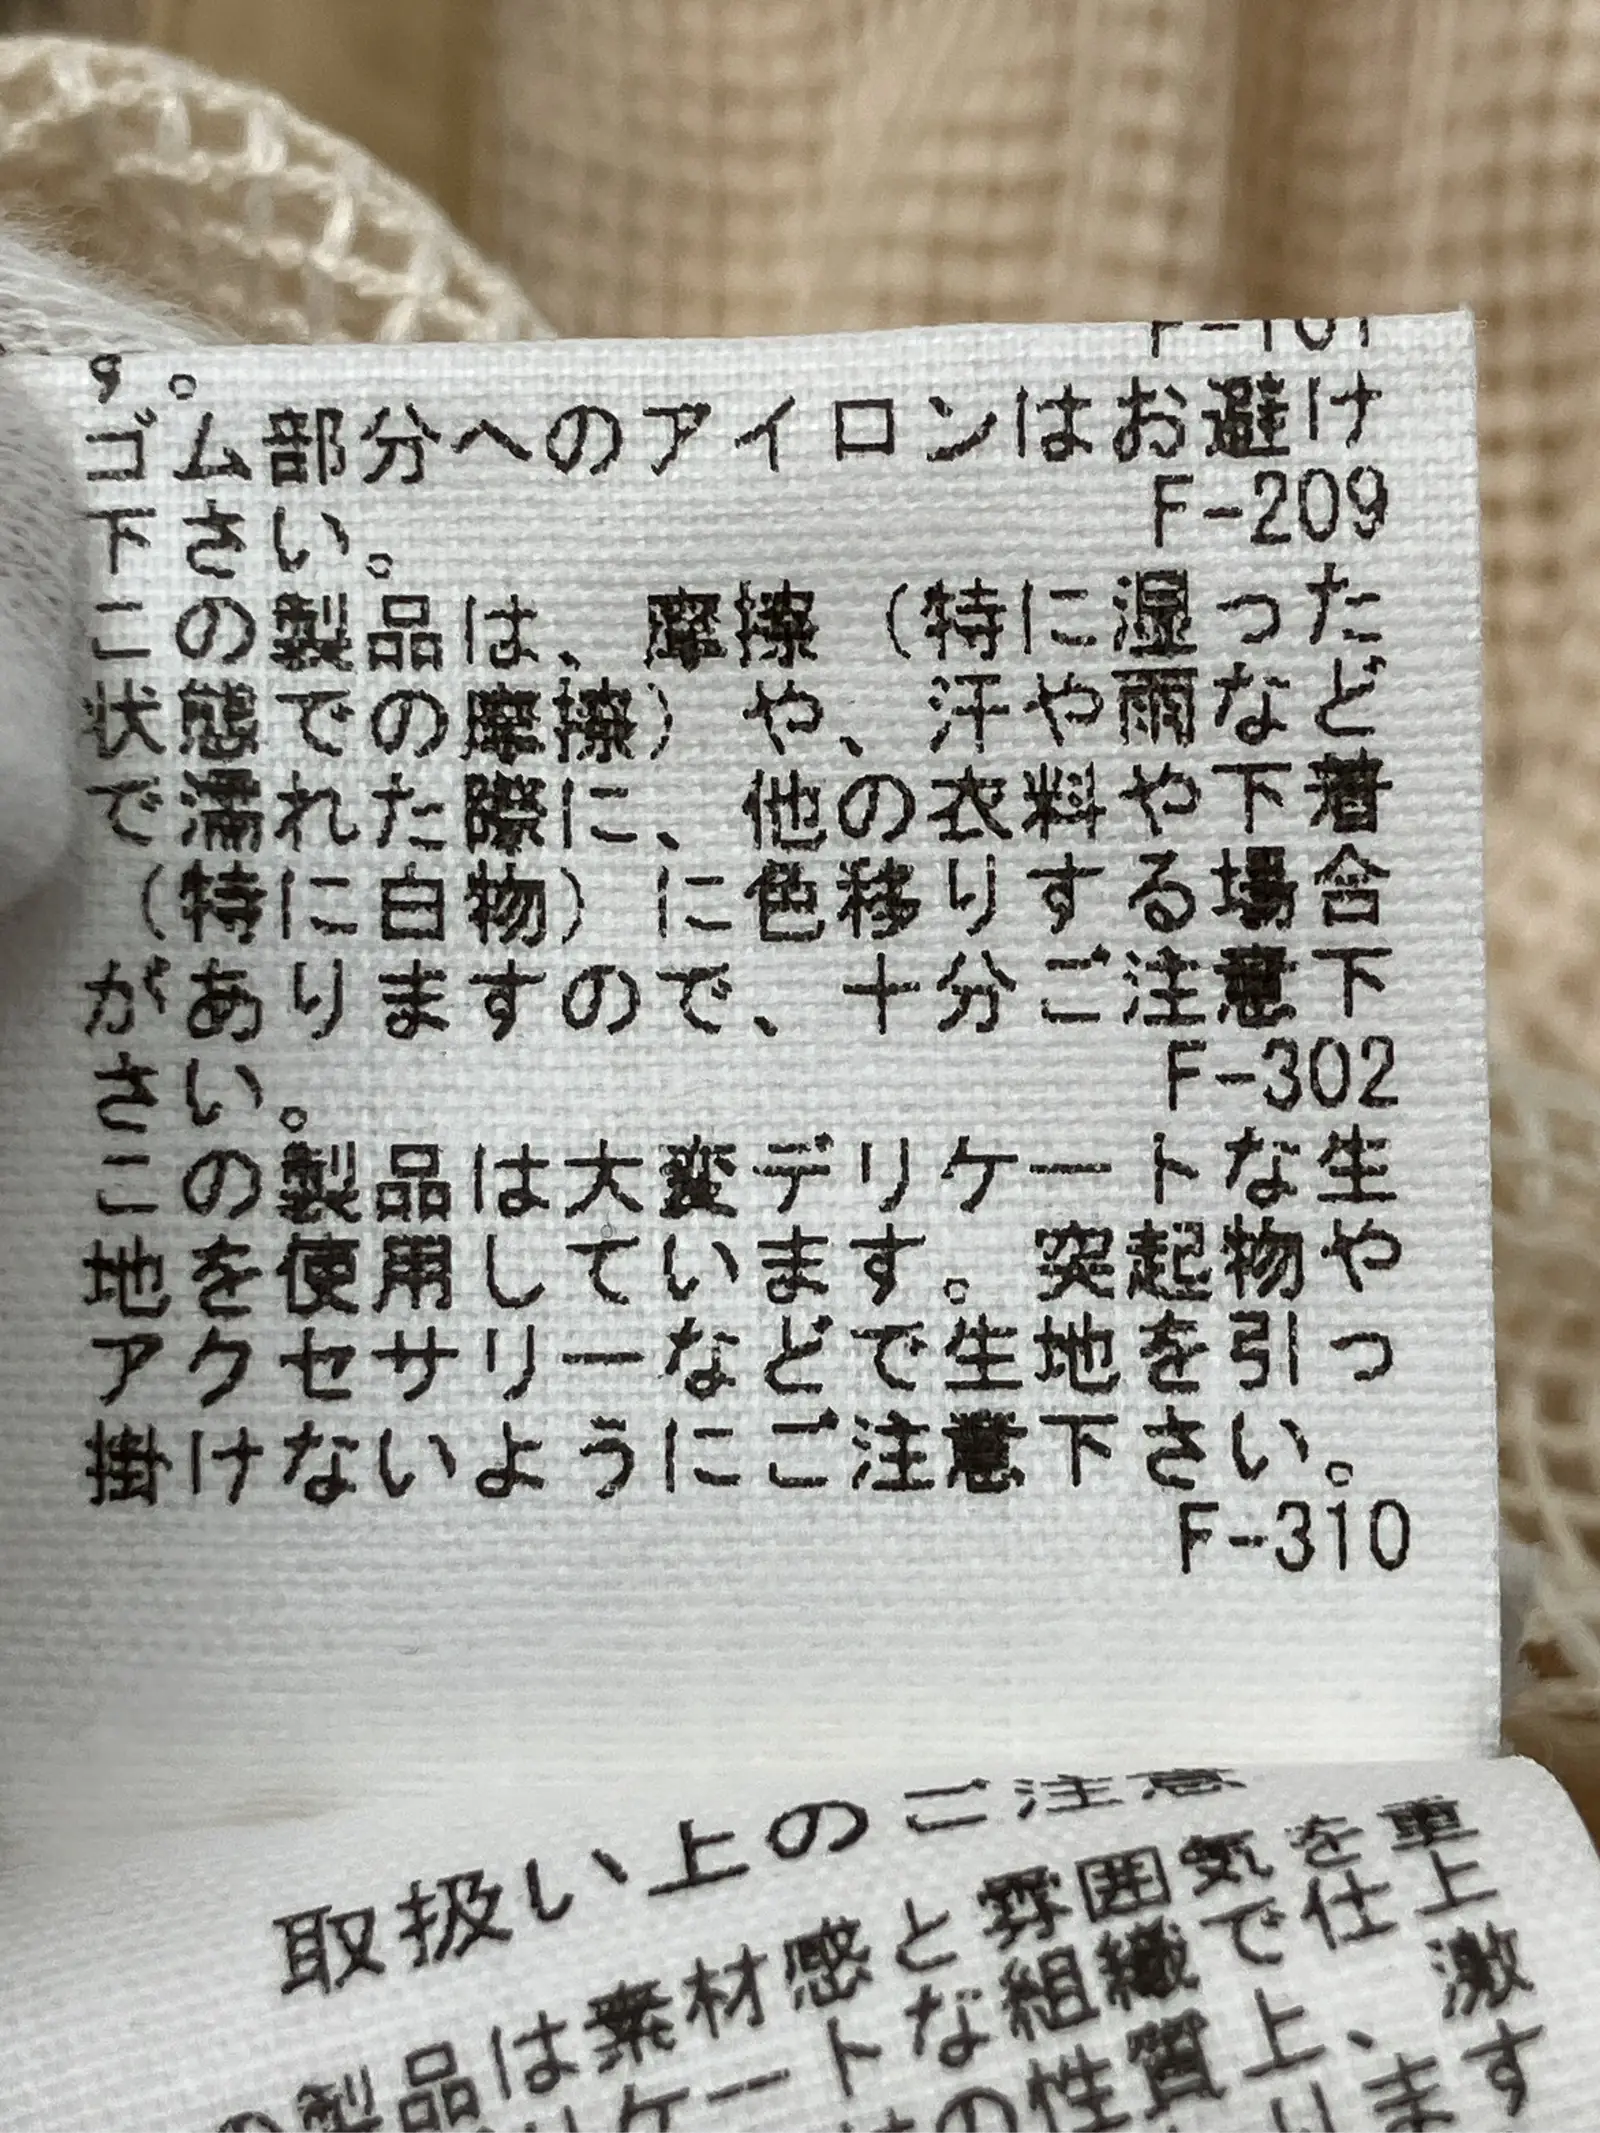 F-101
す。
ゴム部分へのアイロンはお避け
下さい。
F-209
この製品は、摩擦（特に湿った
状態での摩擦）や、汗や雨など
で濡れた際に、他の衣料や下着
（特に白物）に色移りする場合
がありますので、十分ご注意下
さい。
F-302
この製品は大変デリケートな生
地を使用しています。突起物や
アクセサリーなどで生地を引っ
掛けないようにご注意下さい。
F-310
取扱い上のご注意
の製品は素材感と雰囲気を重
リケートな組織で仕上
の性質上、激
ります